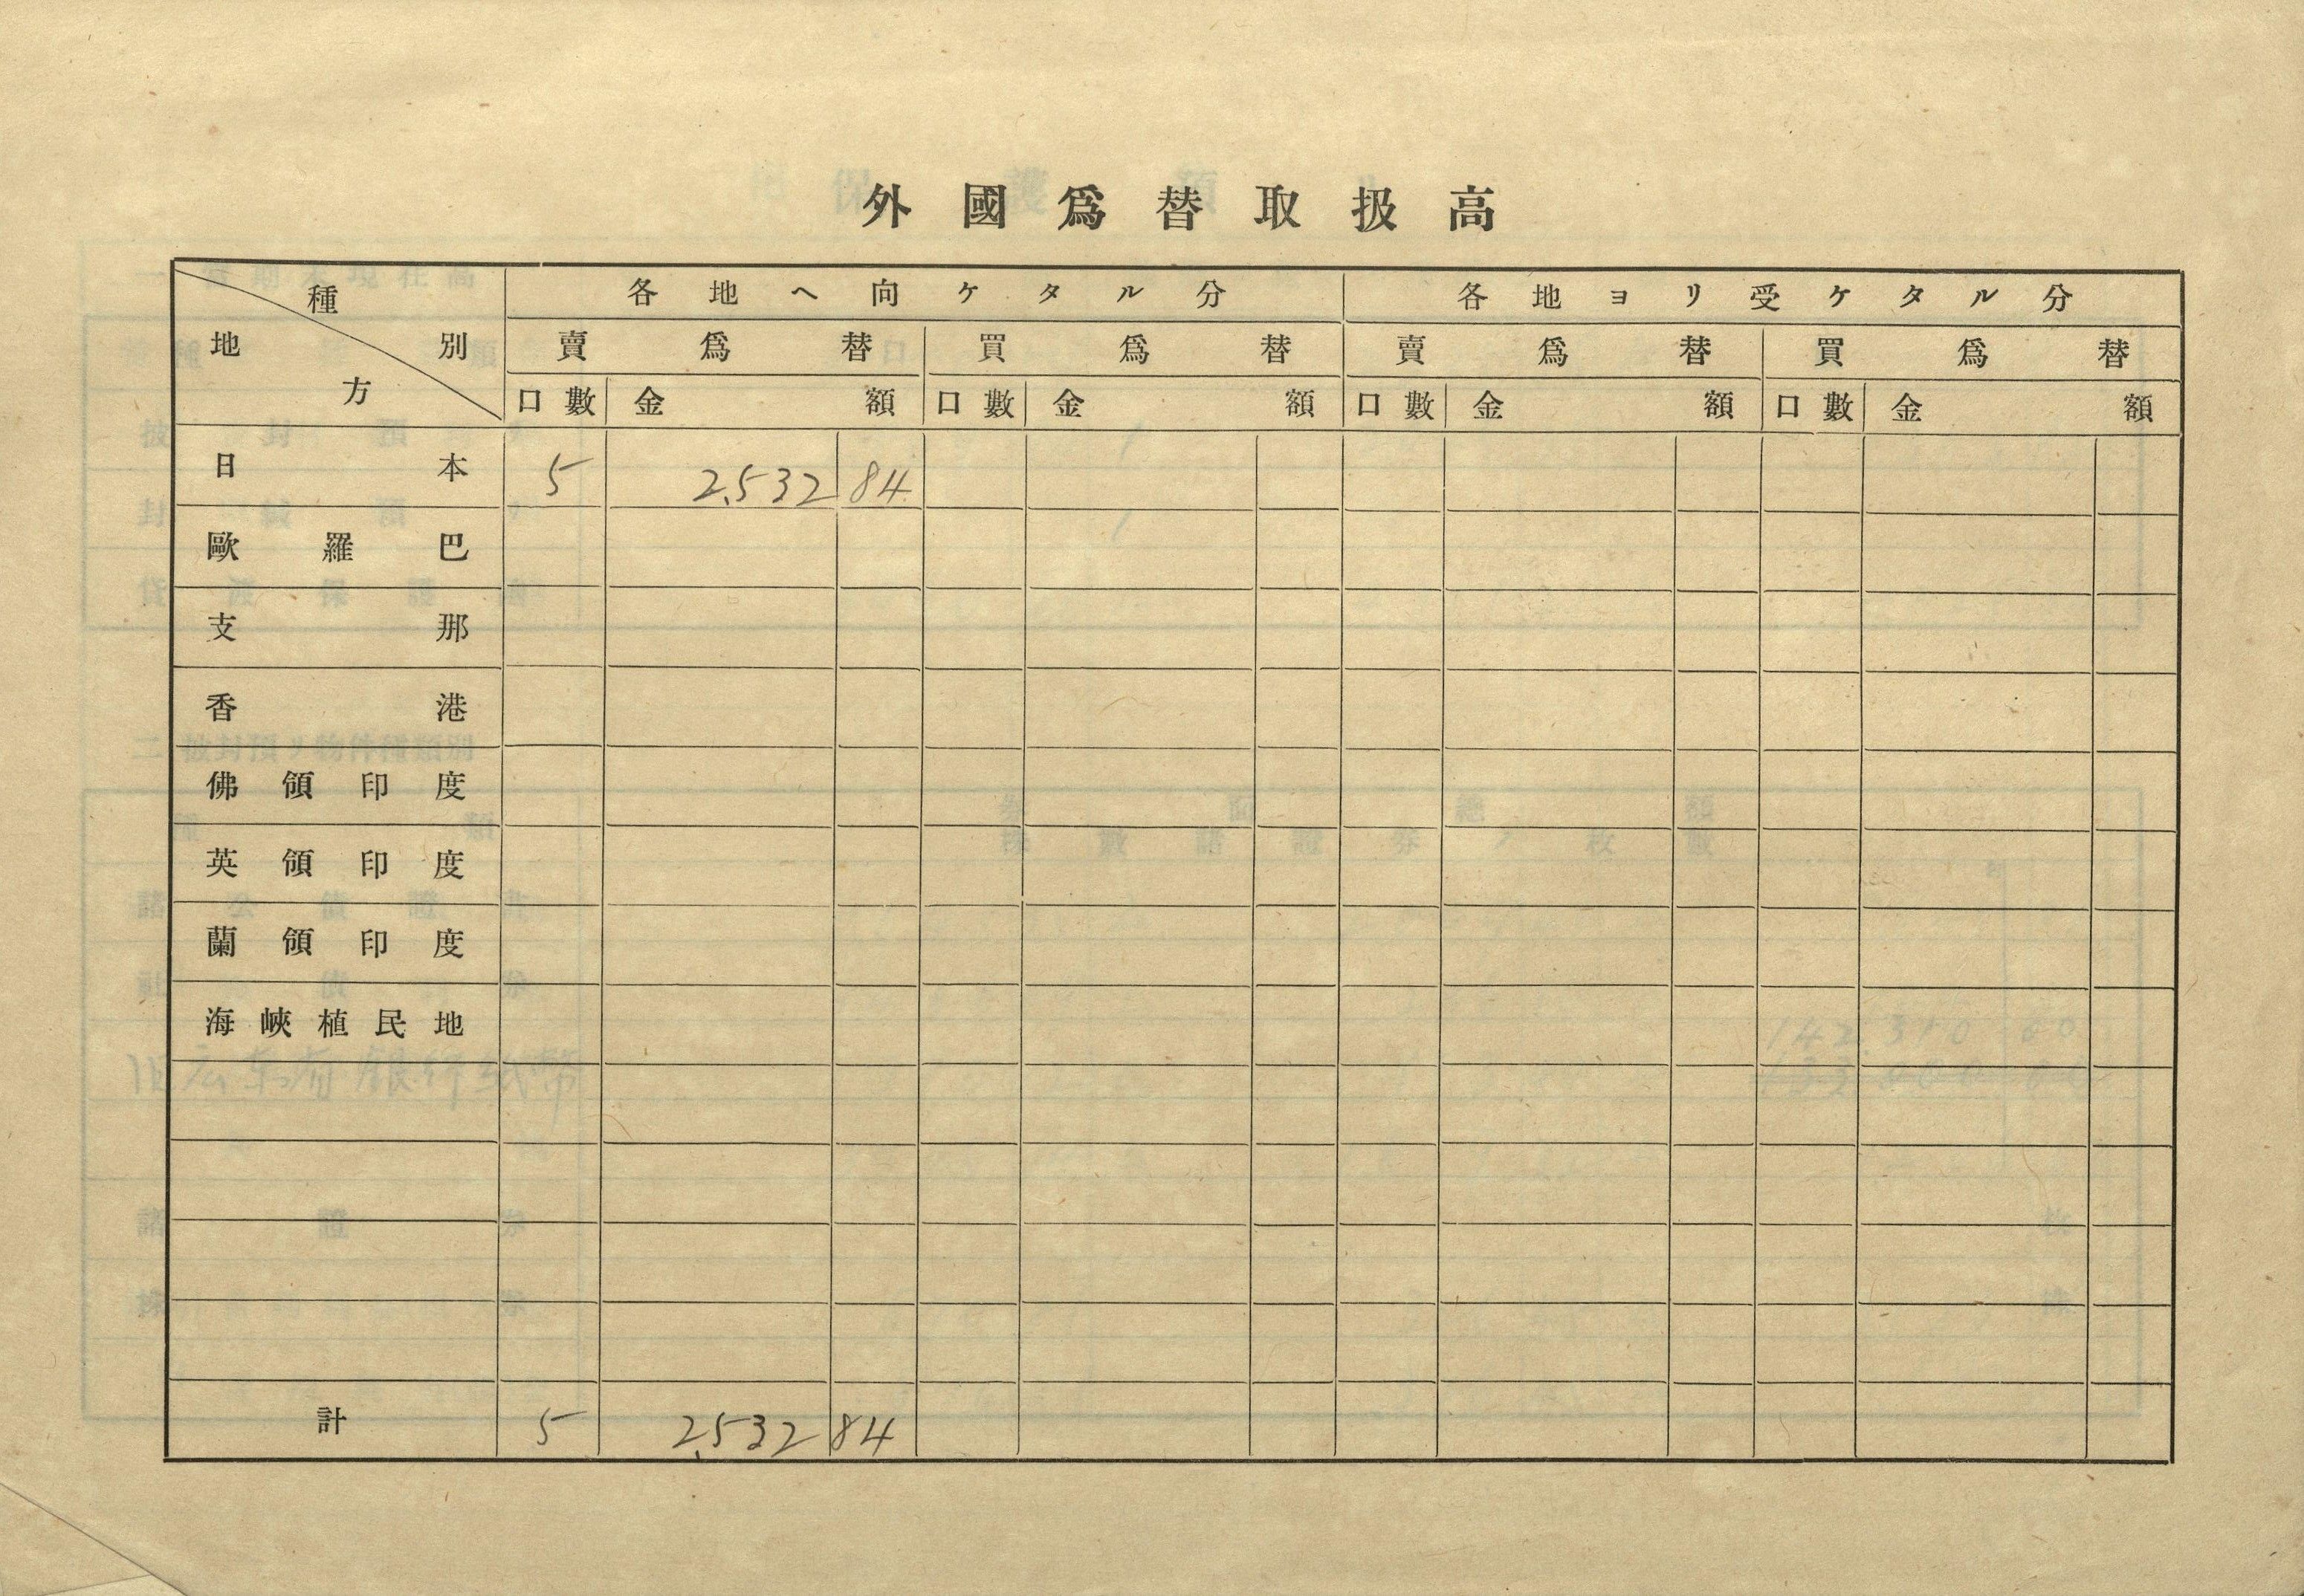 外國爲替取扱高
種別 地方 各地ヘ向ケタル分 各地ヨリ受ケタル分
賣爲替 買爲替 賣爲替 買爲替
口數 金額 口數 金額 口數 金額 口數 金額
日本 5 2,532 84
歐羅巴
支那
香港
佛領印度
英領印度
蘭領印度
海峽植民地
計 5 2,532 84